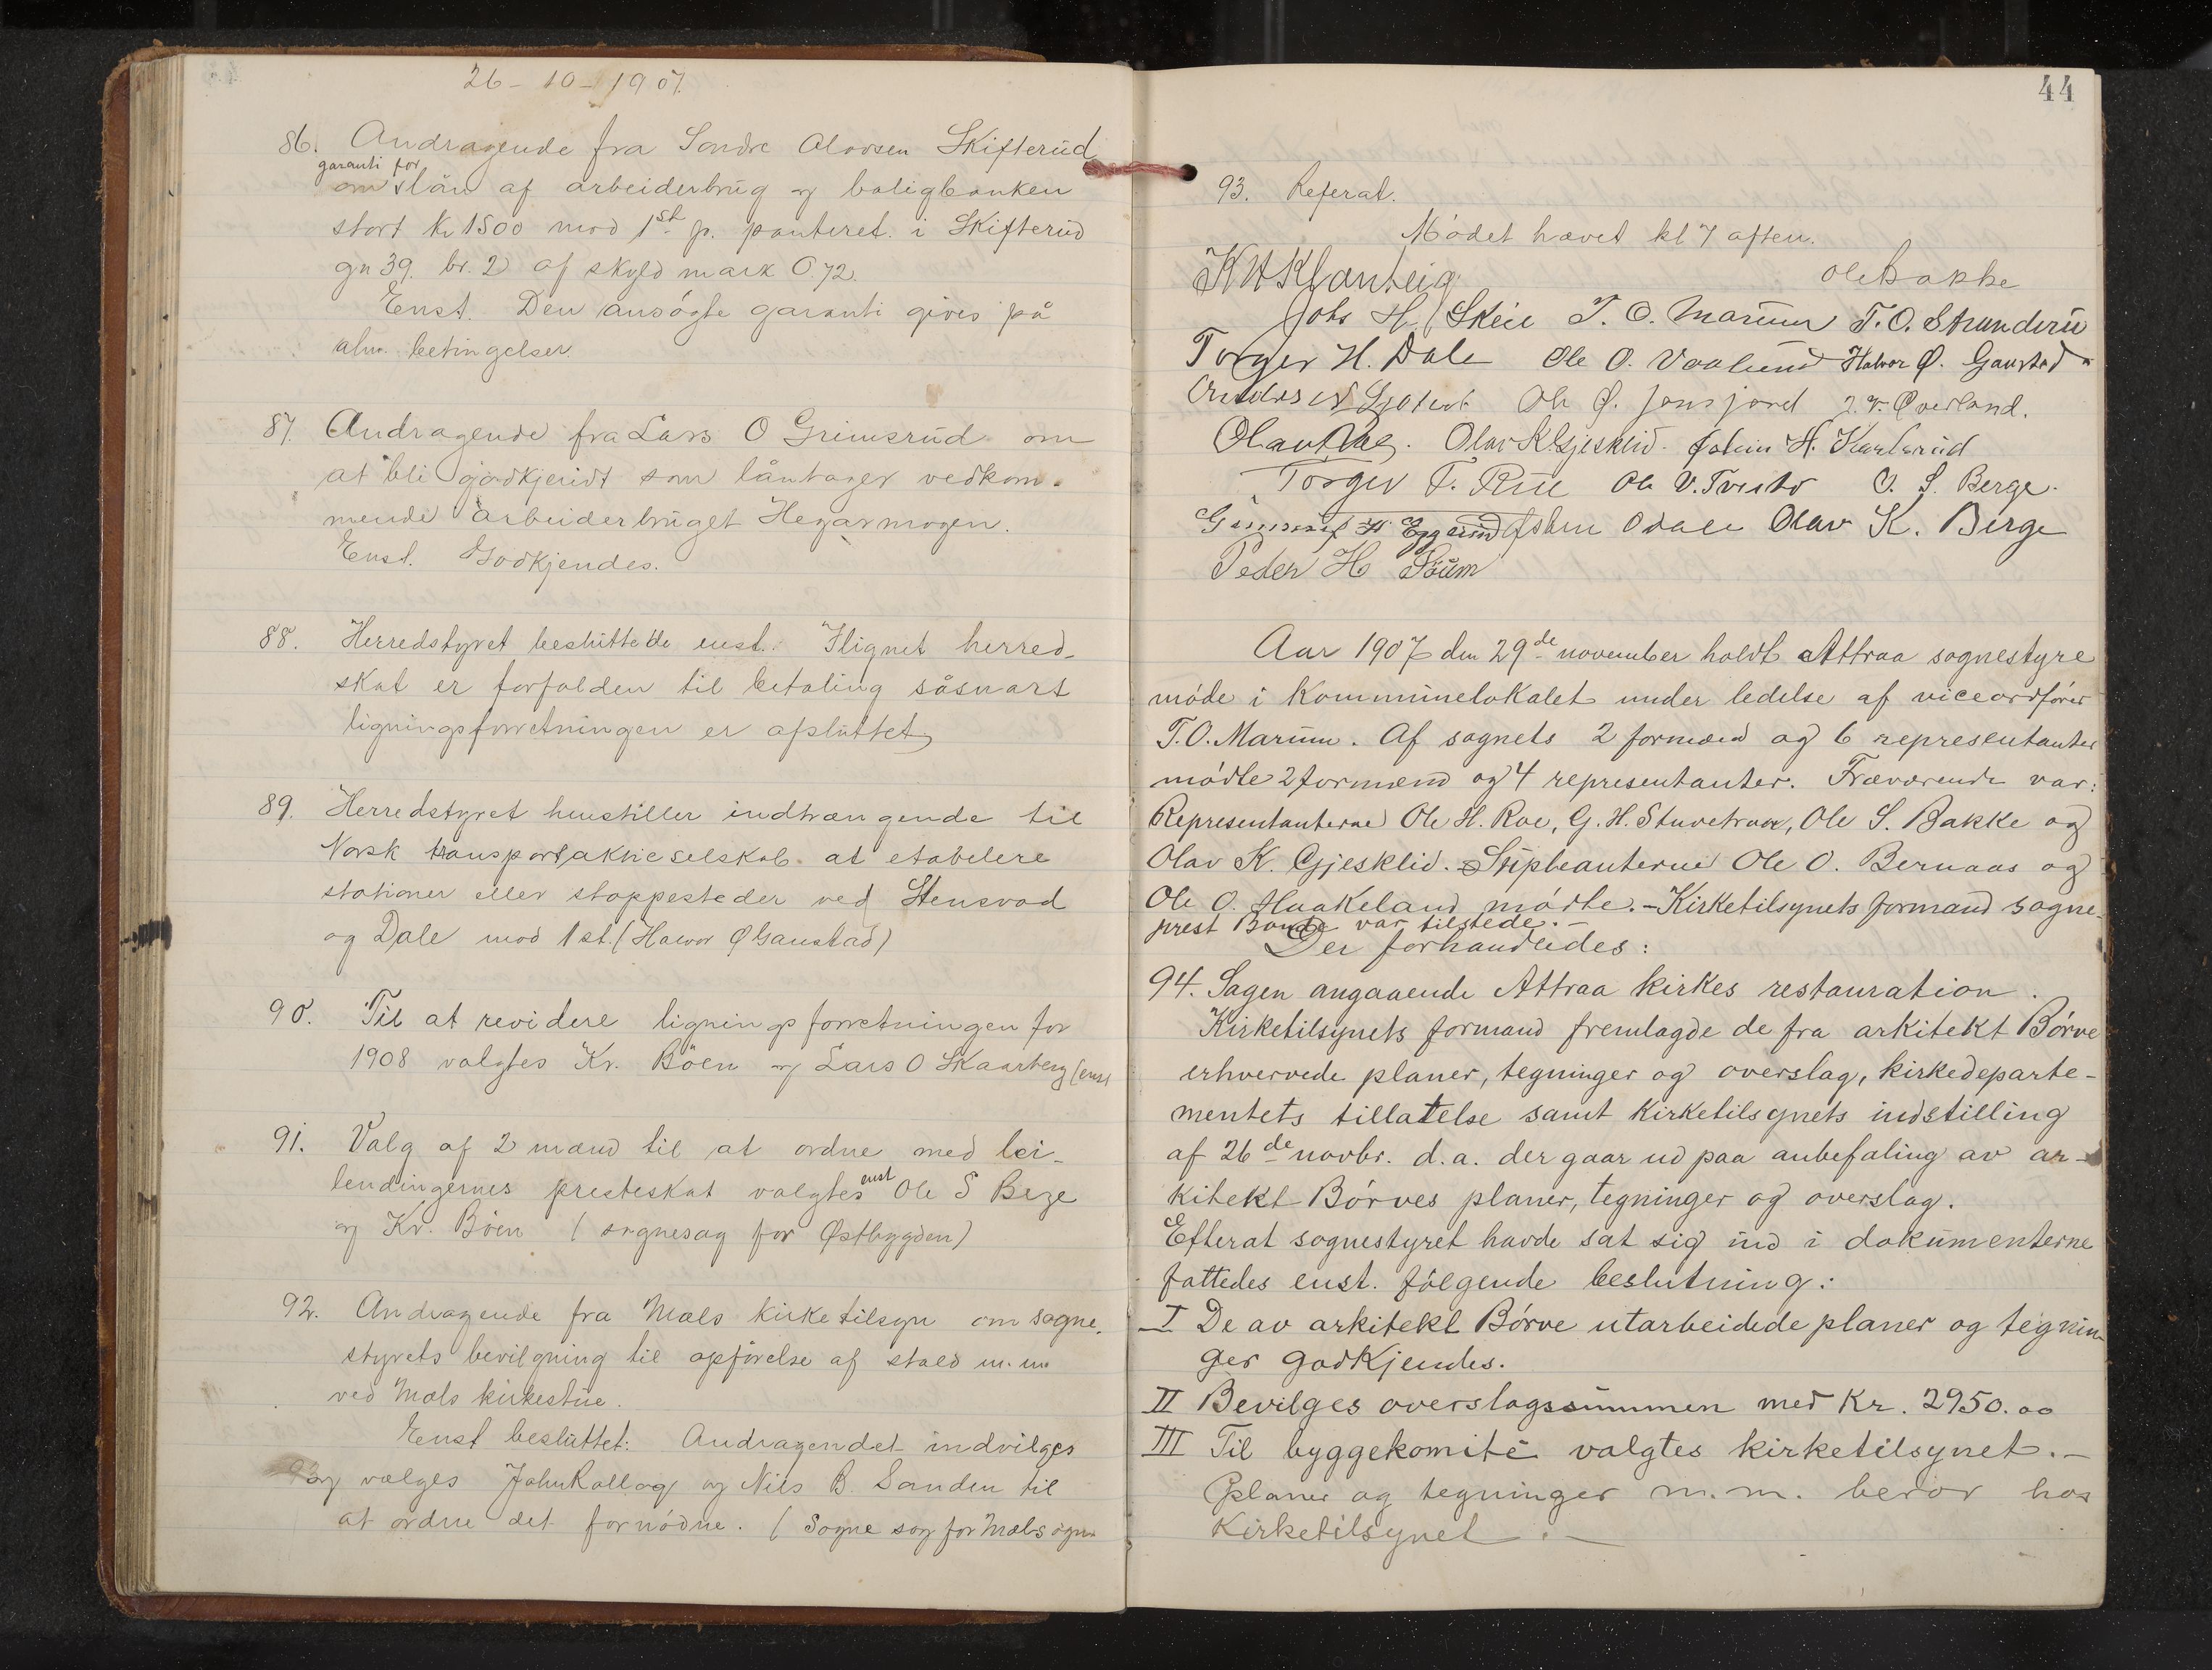 26-10-1907.
86. Andragende fra Sondre Olavsen Skifterud
garanti for
om lån af arbeiderbrug og boligbanken
stort kr 1500 mod 1st p. panteret i Skifterud
gn 39. br. 2 af skyld mark 0.72.
Enst. Den ansøgte garanti gives på
alm. betingelser.
87. Andragende fra Lars O Grimsrud om
at bli godkjendt som låntager vedkom-
mende arbeiderbruget Hegarmogen.
Enst. Godkjendes.
88. Herredstyret besluttede enst.: Ilignet herred-
skat er forfalden til betaling såsnart
ligningsforretningen er afsluttet
89. Herredstyret henstiller indtrængende til
Norsk transportaktieselskab at etabelere
stationer eller stoppesteder ved Stensvad
og Dale mod 1 st. (Halvor Ø Gaustad)
90. Til at revidere ligningsforretningen for
1908 valgtes Kr. Böen og Lars O Skaarberg (enst
91. Valg af 2 mænd til at ordne med lei-
enst
lendingernes presteskat valgtes Ole S Berge
og Kr. Böen (sognesag for Østbygden)
92. Andragende fra Mæls kirketilsyn om sogne-
styrets bevilgning til opförelse af stald m.m
ved Mæls kirkestue.
Enst besluttet: Andragendet indvilges
og vælges John Rollag og Nils B. Sanden til
at ordne det fornødne. (Sogne sag for Mæl sogn
44
93. Referat.
Mödet hævet kl 7 aften.
Ole Bakke
Johs H. Skeie T. O. Marum T. O. Strunderu
Torger H. Dale Ole O. Vaalund Halvor Ø. Gaustad
Ole Ø. Jonsjord J. V. Øverland.
Olav K. Gjesklid. John H. Karlsrud
Torger T. Rue Ole V. Tveito O. S. Berge.
Gunnulf H. Eggerud John O Dale Olav K. Berge
Peder H Söum
Aar 1907 den 29de november holdt Attraa sognestyre
möde i kommunelokalet under ledelse af viceordförer
T. O. Marum. Af sognets 2 formænd og 6 representanter
mödte 2 formænd og 4 representanter. Fraværende var:
Representanterne Ole H. Roe, G. H. Stuvetraa, Ole S. Bakke og
Olav K. Gjesklid. - Supleanterne Ole O. Bernaas og
Ole O. Haakeland mödte. - Kirketilsynets formand sogne-
prest Bonde var tilstede. -
Der forhandledes:
94. Sagen angaaende Attraa kirkes restauration.
Kirketilsynets formand fremlagde de fra arkitekt Börve
erhvervede planer, tegninger og overslag, kirkedeparte-
mentets tillatelse samt kirketilsynets indstilling
af 26de novbr. d.a. der gaar ud paa anbefaling av ar-
kitekt Börves planer, tegninger og overslag.
Efterat sognestyret havde sat sig ind i dokumenterne
fattedes enst. fölgende beslutning:
I De av arkitekt Börve utarbeidede planer og tegnin-
ger godkjendes.
II Bevilges overslagssummen med Kr. 2950.00
III Til byggekomité valgtes kirketilsynet. -
Planer og tegninger m.m. beror hos
Kirketilsynet. -